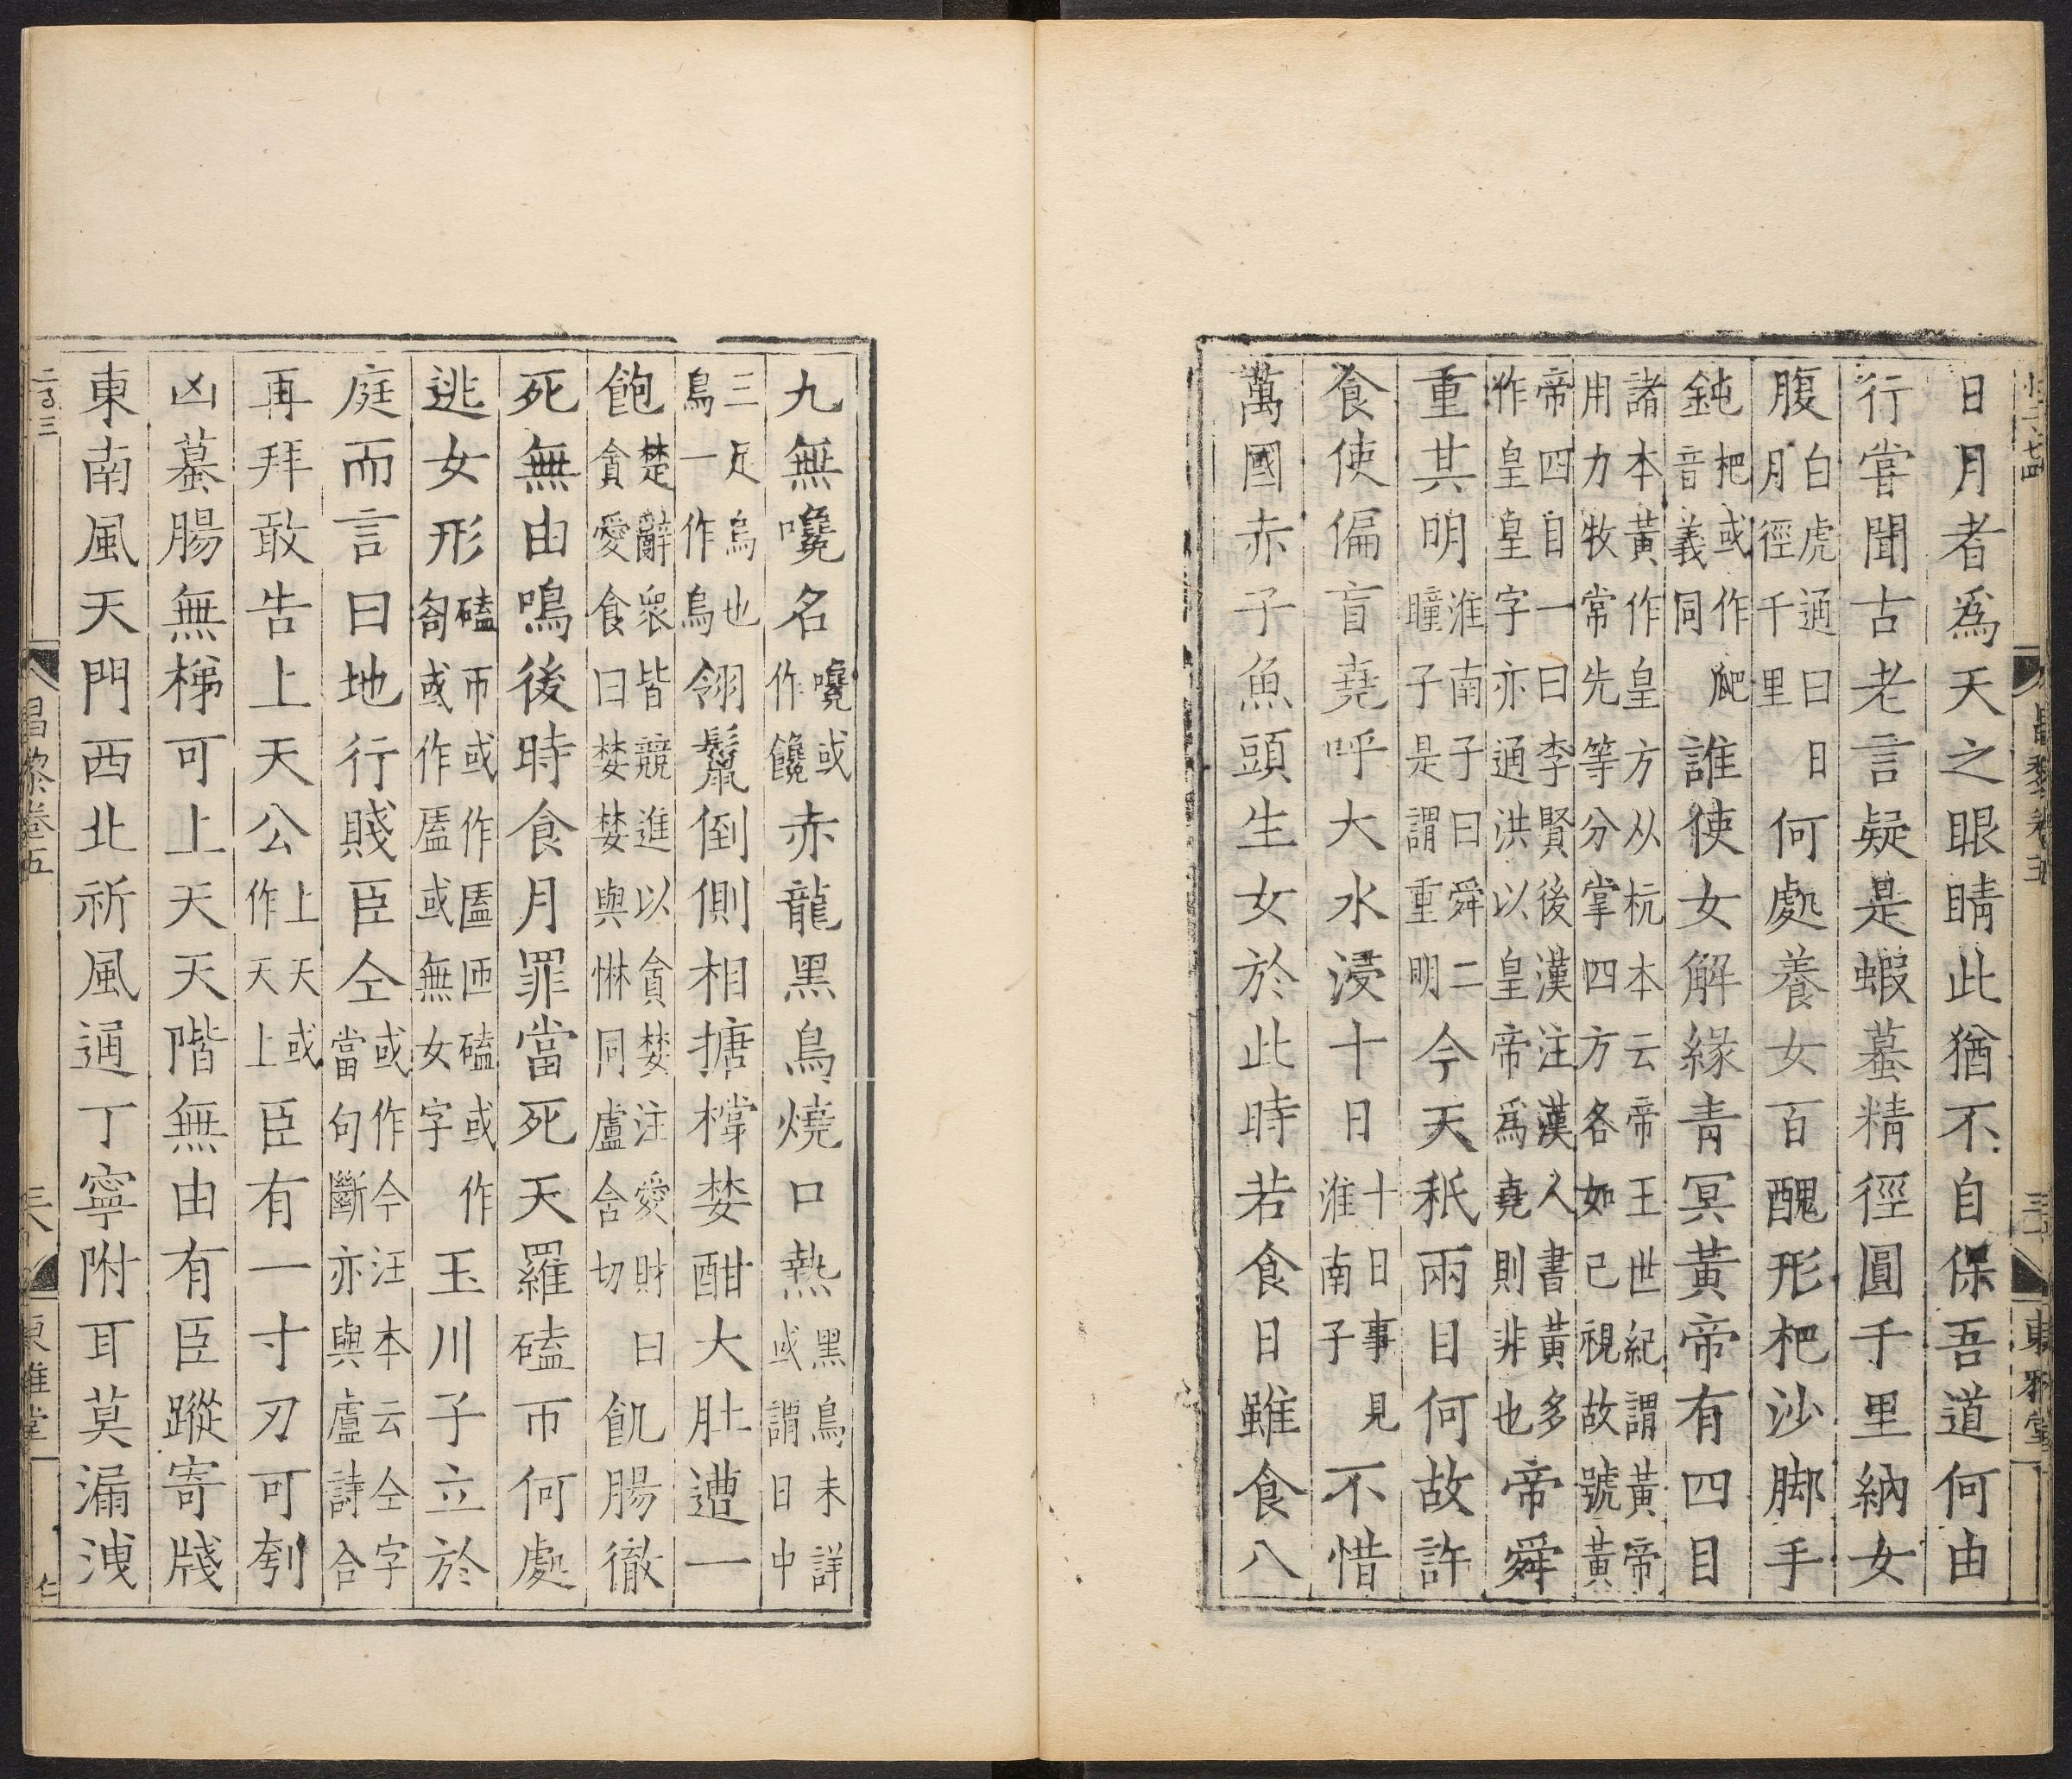 日月者爲天之眼睛此猶不自保吾道何由
行嘗聞古老言疑是蝦蟇精徑圓千里納女
腹白虎通曰日月徑千里何處養女百醜形杷沙脚手
鈍杷或作爬音義同誰使女解緣青冥黃帝有四目
諸本黃作皇方从杭本云帝王世紀謂黃帝用力牧常先等分掌四方各如己視故號黃
帝四目一曰李賢後漢注漢人書黃多作皇皇字亦通洪以皇帝爲堯則非也帝舜
重其明淮南子曰舜二瞳子是謂重明今天秖兩目何故許
食使偏盲堯呼大水浸十日十日事見淮南子不惜
萬國赤子魚頭生女於此時若食日雖食八
昌黎卷五
東雅堂
九無嚵名嚵或作饞赤龍黑鳥燒口熱黑鳥未詳或謂日中
三足烏也鳥一作烏翎鬣倒側相搪橕婪酣大肚遭一
飽楚辭衆皆競進以貪婪注愛財曰貪愛食曰婪婪與惏同盧含切飢腸徹
死無由鳴後時食月罪當死天羅磕帀何處
逃女形磕帀或作匼匝磕或作㓣或作㕎或無女字玉川子立於
庭而言曰地行賤臣仝或作今汪本云仝字當句斷亦與盧詩合
再拜敢告上天公上天或作天上臣有一寸刃可刳
凶蟇腸無梯可上天天階無由有臣蹤寄牋
東南風天門西北祈風通丁寧附耳莫漏洩
昌黎卷五
東雅堂